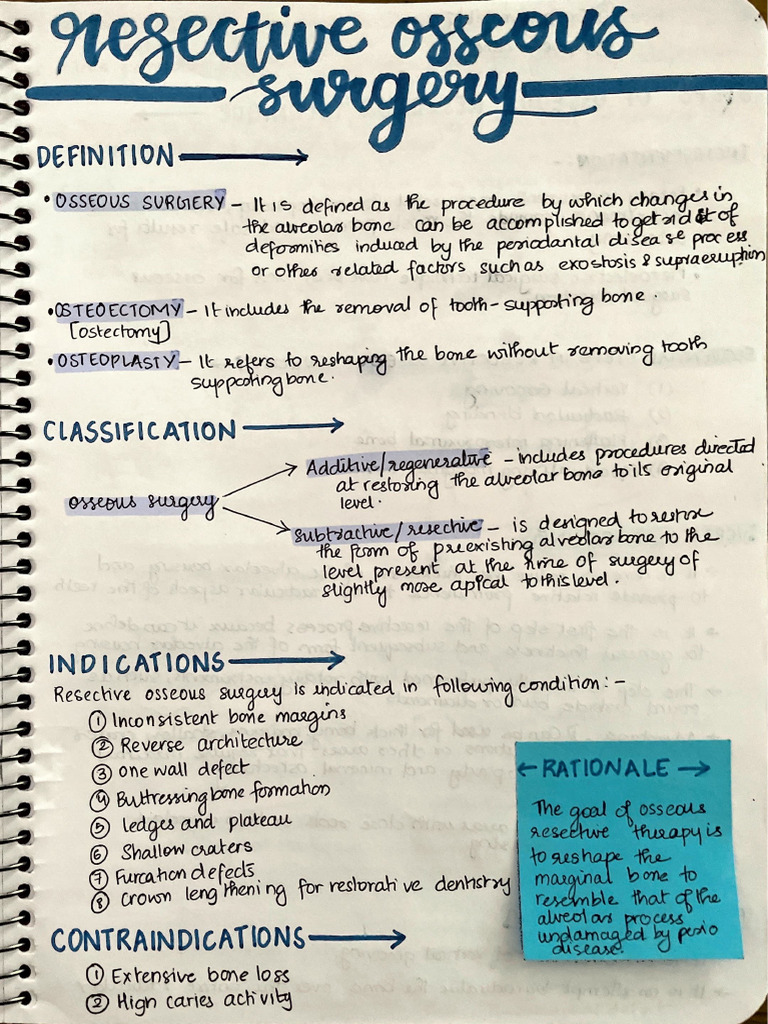 resective osseous
surgery
DEFINITION
• OSSEOUS SURGERY – It is defined as the procedure by which changes in
the alveolar bone can be accomplished to get rid of
deformities induced by the periodantal disease process
or other related factors such as exostosis & supraeruption
• OSTEOECTOMY – It includes the removal of tooth-supporting bone.
[ostectomy]
• OSTEOPLASTY – It refers to reshaping the bone without removing tooth
supporting bone.
CLASSIFICATION
osseous surgery
Additive/regenerative – includes procedures directed
at restoring the alveolar bone to its original
level.
subtractive/resective – is designed to restore
the form of preexisting alveolar bone to the
level present at the time of surgery of
slightly more apical to this level.
INDICATIONS
Resective osseous surgery is indicated in following condition:-
① Inconsistent bone margins
② Reverse architecture
③ one wall defect
④ Buttressing bone formation
⑤ ledges and plateau
⑥ Shallow craters
⑦ Furcation defects
⑧ Crown lengthening for restorative dentistry
← RATIONALE →
The goal of osseous
resective therapy is
to reshape the
marginal bone to
resemble that of the
alveolar process
undamaged by perio
disease
CONTRAINDICATIONS
① Extensive bone loss
② High caries activity